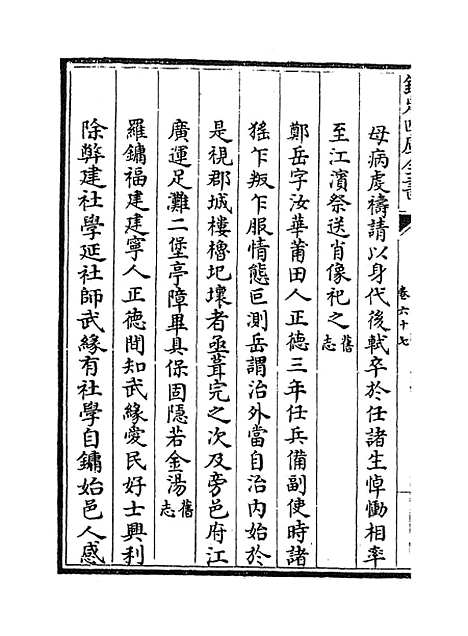 欽定四庫全書
卷六十七
母病虔禱請以身代後軾卒於任諸生悼慟相率
至江濱祭送肖像祀之舊志
鄭岳字汝華莆田人正德三年任兵備副使時諸
猺乍叛乍服情態叵測岳謂治外當自治内始於
是視郡城樓櫓圯壞者亟葺完之次及旁邑府江
廣運足灘二堡亭障畢具保固隱若金湯舊志
羅鏞福建建寧人正德間知武緣愛民好士興利
除弊建社學延社師武緣有社學自鏞始邑人感